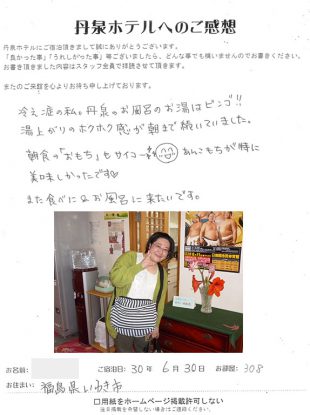 丹泉ホテルへのご感想
丹泉ホテルにご宿泊頂きまして誠にありがとうございます。
「良かった事」「うれしかった事」等ございましたら、どんな事でも構いませんのでお書きください。
お書き頂きました内容はスタッフ全員で拝読させて頂きます。
またのご来館を心よりお待ち申し上げております。
冷え症の私。丹泉のお風呂のお湯はビンゴ!!
湯上がりのホクホク感が朝まで続いていました。
朝食の「おもち」もサイコー あんこもちが特に
美味しかったです♡
また食べに&お風呂に来たいです。
お名前: ご宿泊日: 30 年 6 月 30 日 お部屋: 308
お住まい: 福島県いわき市
口用紙をホームページ掲載許可しない